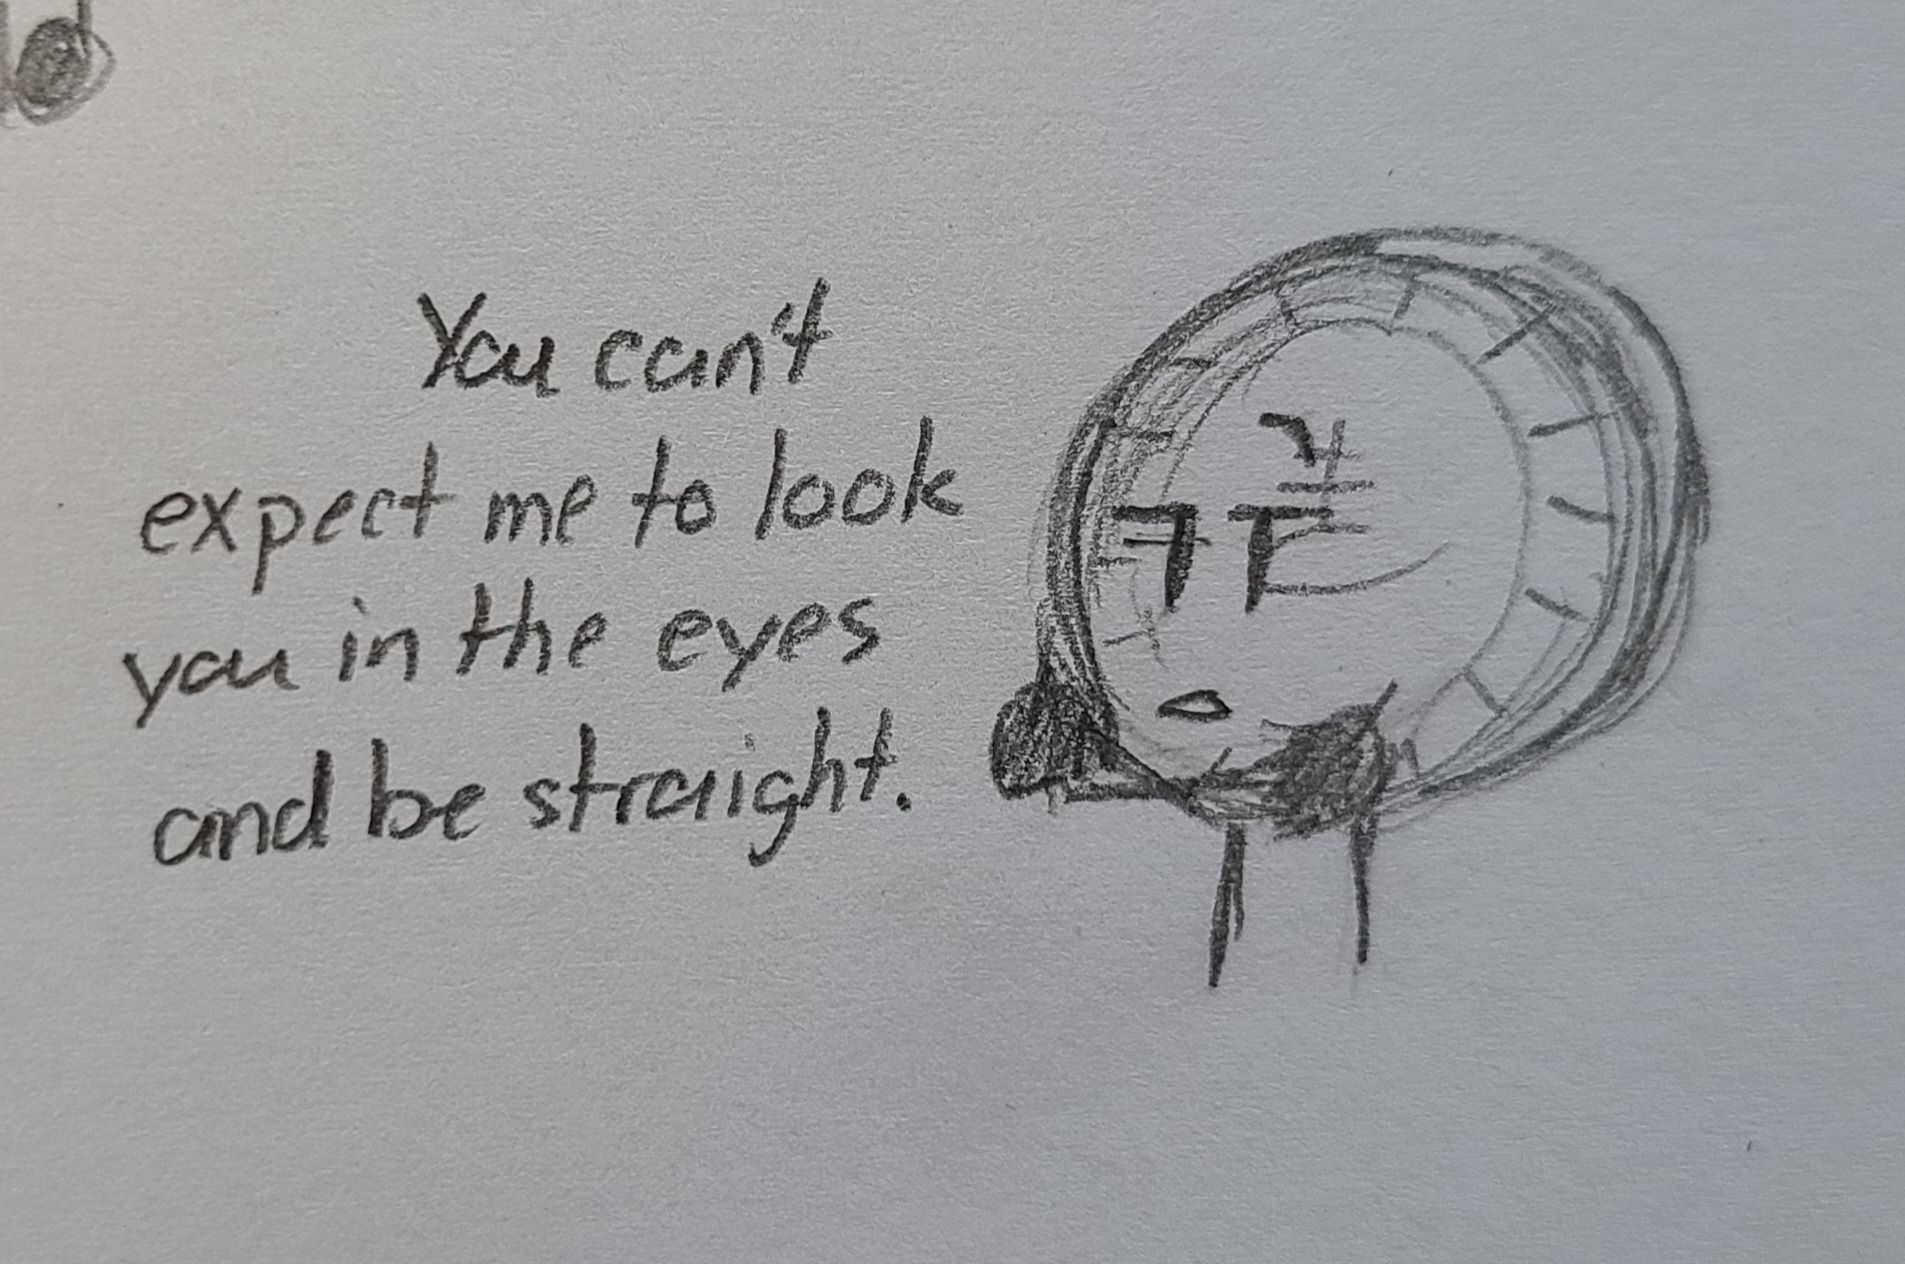 You can't
expect me to look
you in the eyes
and be straight.